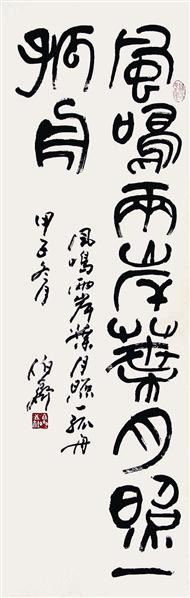 風鳴兩岸葉月照一
孤舟
風鳴兩岸葉月照一孤舟
甲子冬月